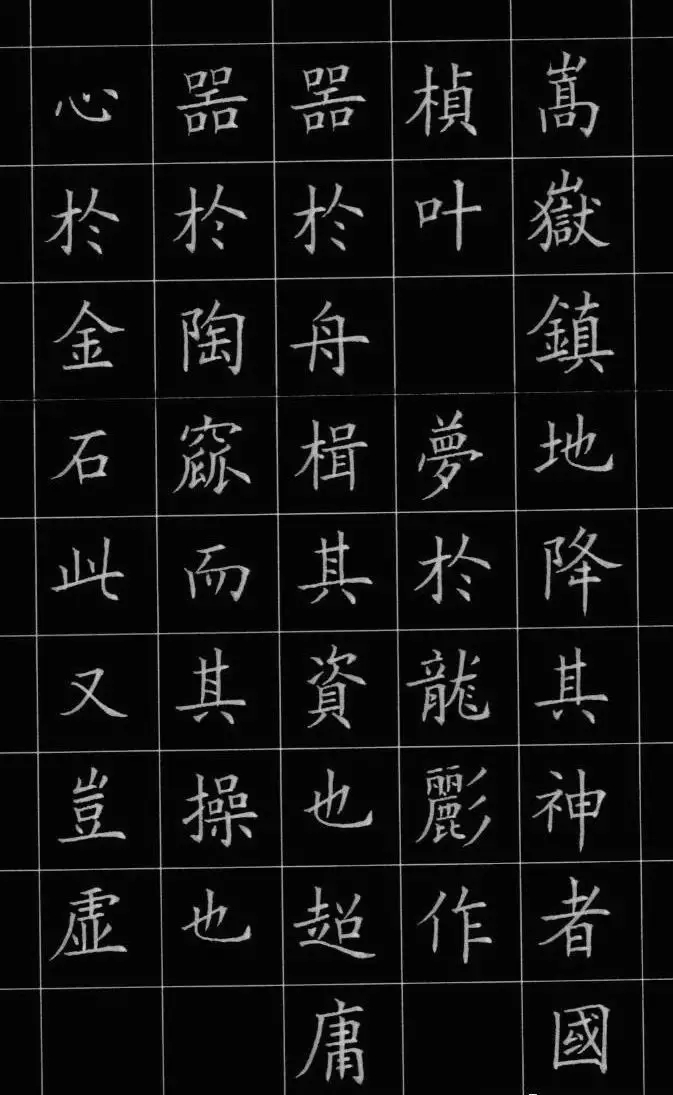 嵩嶽鎮地降其神者國
楨叶夢於龍彲作
噐於舟楫其資也超庸
噐於陶窳而其操也
心於金石此又豈虛